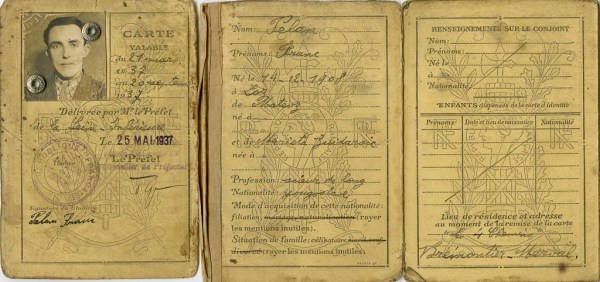 CARTE
VALABLE
du 21 mar
en 37
au 20
37
Délivrée par Mr le Préfet
de la Seine Inférieure
Le 25 MAI 1937
Le Préfet
Signature du Titulaire
Pelan Franc
Nom: Pelan
Prénoms: Franc
Né le 14-12-1908
à Loz
de Matija
né à
et de Marieta
née à
Profession: scieur de long
Nationalité: yougoslave
Mode d'acquisition de cette nationalité:
filiation, mariage, naturalisation (rayer
les mentions inutiles).
Situation de famille: célibataire
divorcé (rayer les mentions inutiles).
RENSEIGNEMENTS SUR LE CONJOINT
Nom:
Prénoms:
Né le
à
Nationalité:
ENFANTS dispensés de la carte d'identité
Prénoms Date et lieu de naissance Nationalité
Lieu de résidence et adresse
au moment de la remise de la carte
Brémontier-Merval